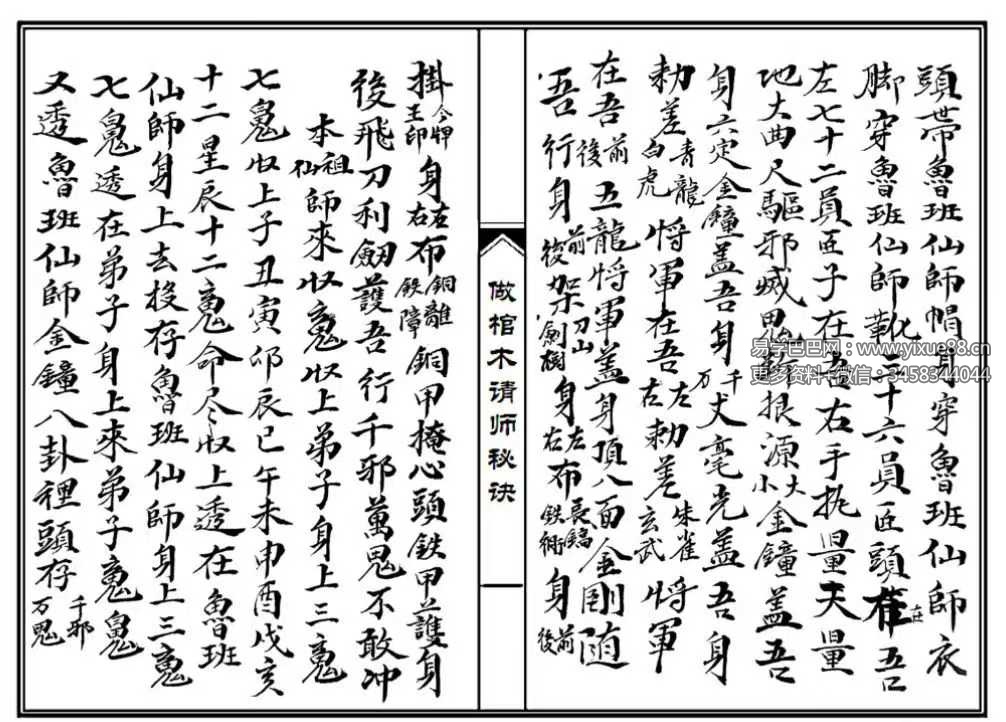 頭帶魯班仙師帽身穿魯班仙師衣
脚穿魯班仙師靴三十六員匠頭在吾
左七十二員匠子在吾右手執量天量
地大曲尺驅邪滅鬼 根源大小金鐘蓋吾
身六定金鐘蓋吾身千万丈毫光蓋吾身
勅差青龍白虎將軍在吾左右勅差朱雀玄武將軍
在吾前後五龍將軍蓋身頂八面金剛随
吾行身前後架刀山劍樹身左右布長鎗鉄 身前後
掛令牌王印身左右布銅籬鉄障銅甲掩心頭鉄甲護身
後飛刀利劒護吾行千邪萬鬼不敢冲
本祖仙師來收魂收上弟子身上三魂
七魄收上子丑寅卯辰巳午未申酉戌亥
十二星辰十二魂命尽收上透在魯班
仙師身上去投存魯班仙師身上三魂
七魄透在弟子身上來弟子魂魄
又透魯班仙師金鐘八卦裡頭存千邪万鬼
做棺木请师秘诀
易学巴巴网：www.yixue88.cn
更多资料+微信：3458344044